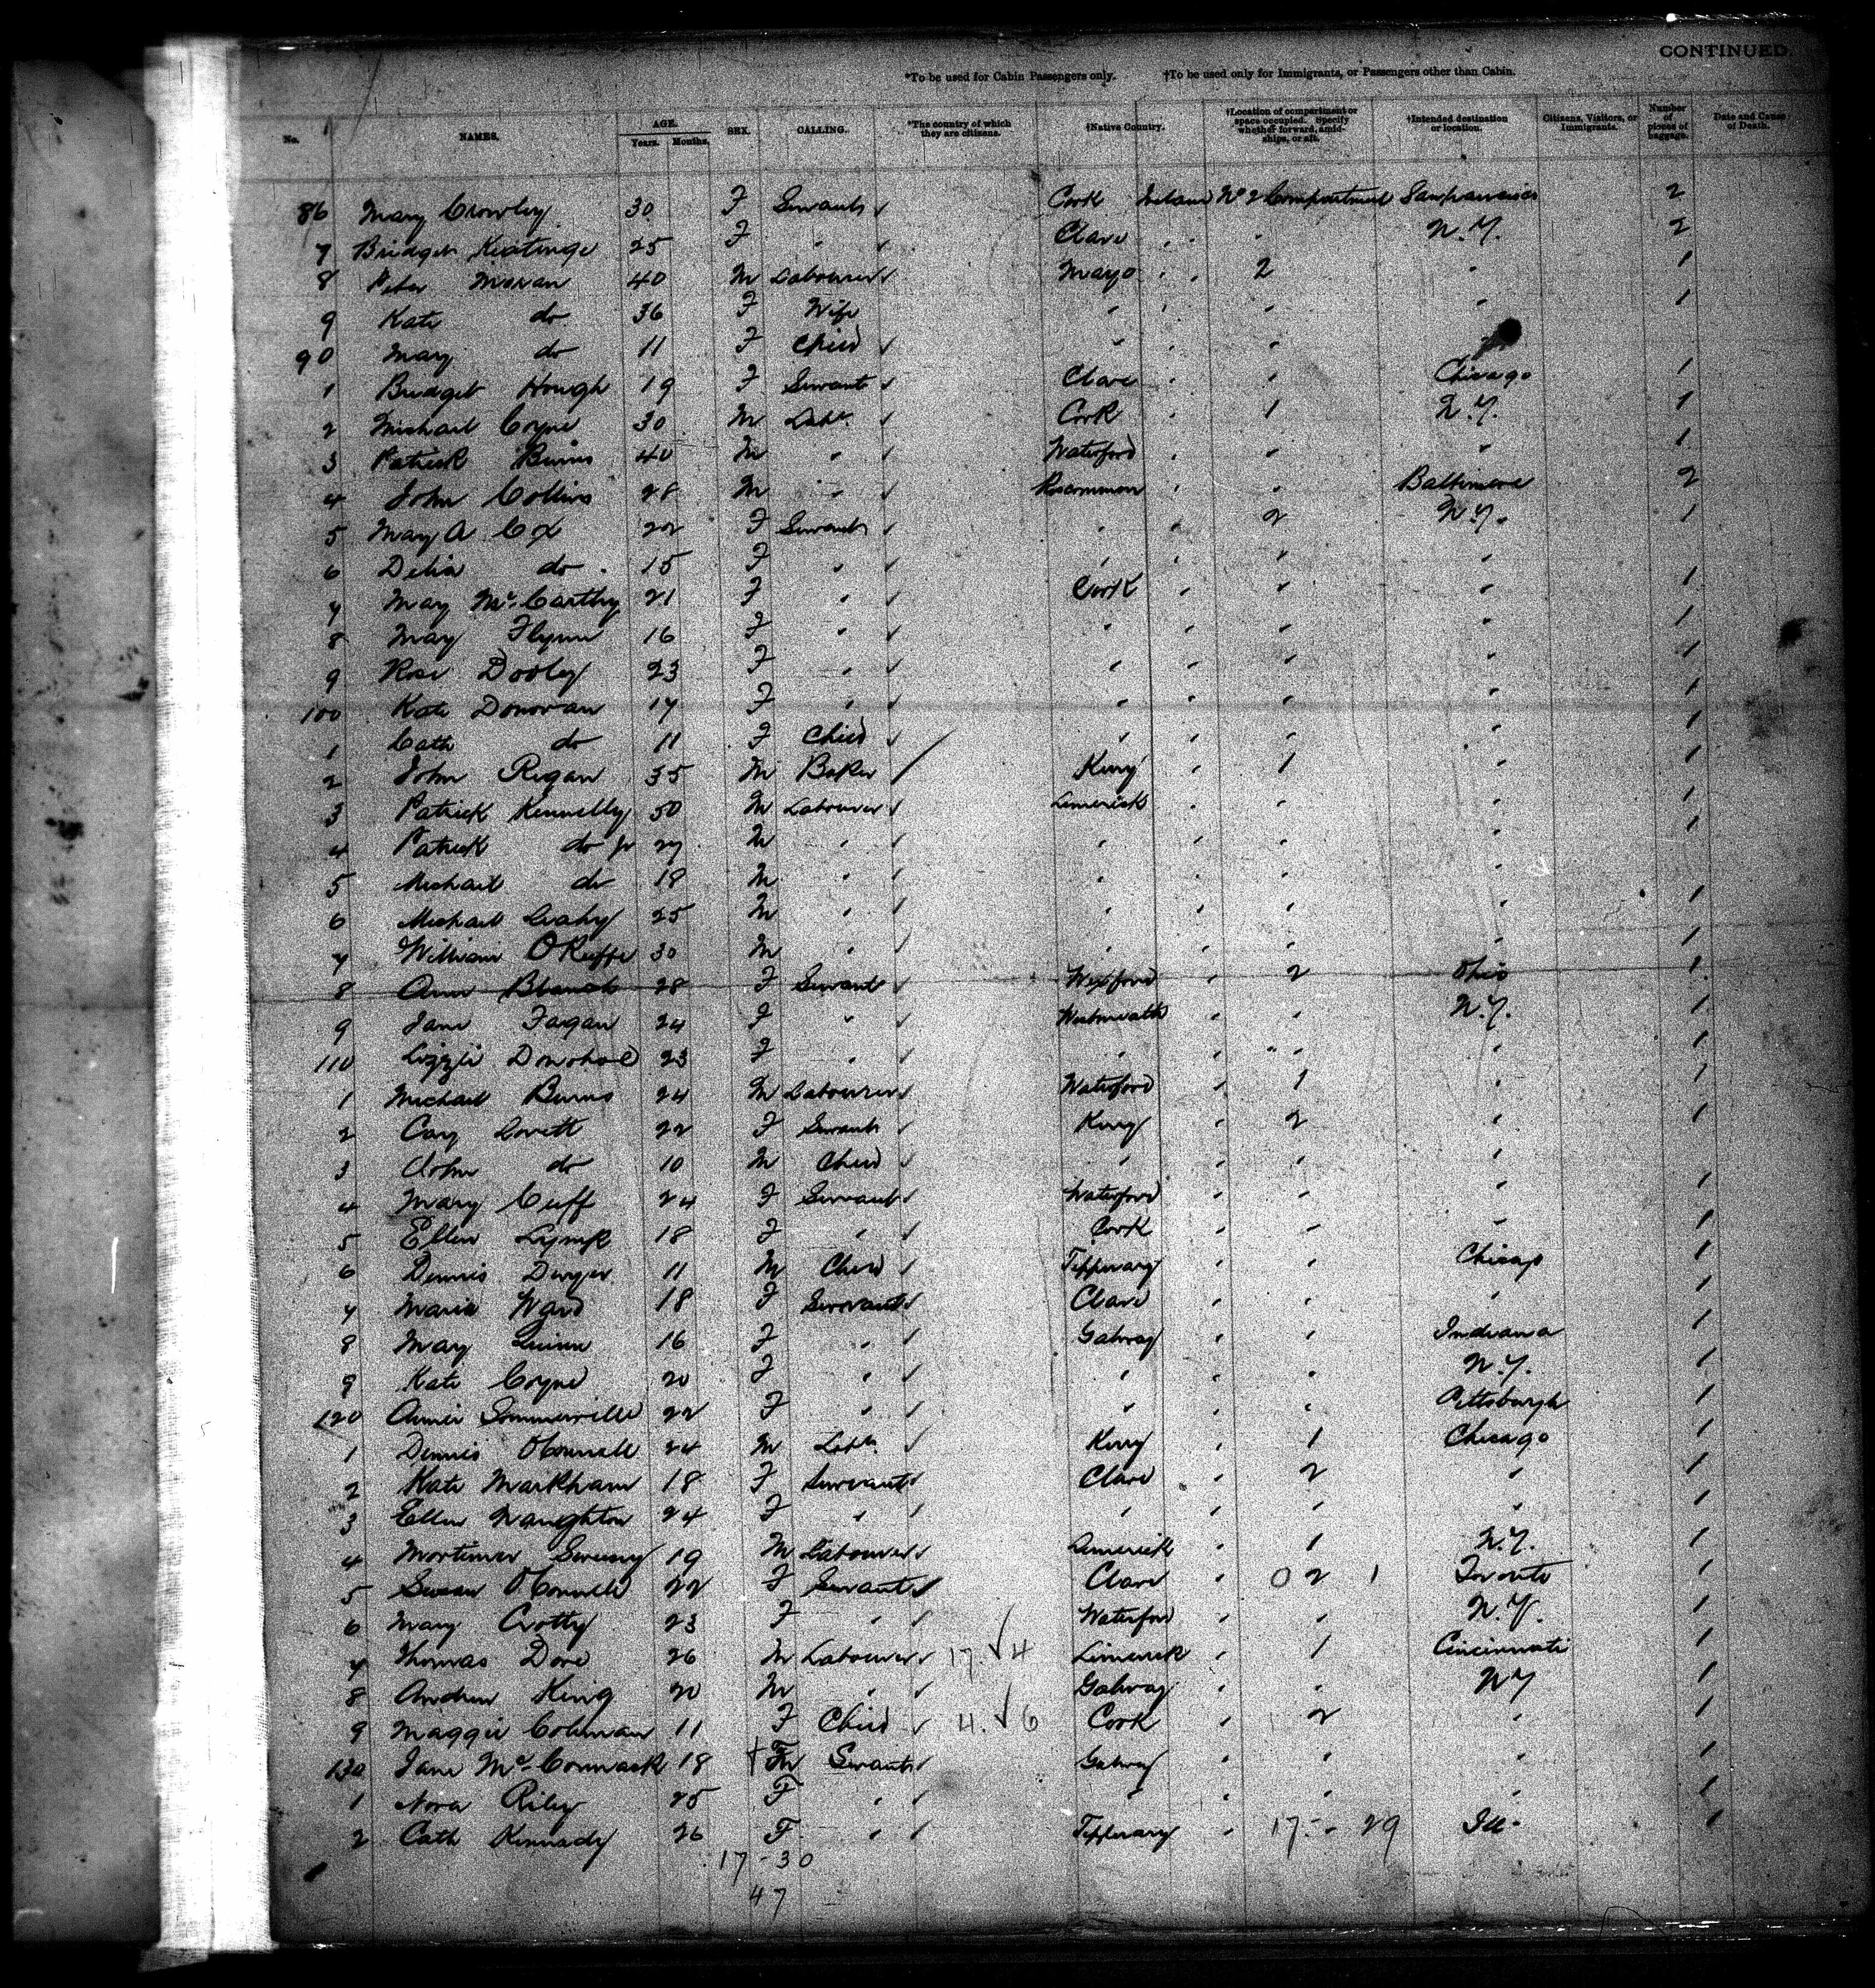 CONTINUED.
*To be used for Cabin Passengers only. †To be used only for Immigrants, or Passengers other than Cabin.
No. NAMES. AGE. Years. Months. SEX. CALLING. *The country of which they are citizens. †Native Country. †Location of compartment or space occupied. Specify whether forward, amidships, or aft. †Intended destination or location. Citizens, Visitors, or Immigrants. Number of pieces of baggage. Date and Cause of Death.
86 Mary Crowley 30 F Servant ✓ Cork Ireland No 2 Compartment Sanfrancisco 2
7 Bridget Keatinge 25 F " ✓ Clare " " N.Y. 2
8 Peter Moran 40 M Labourer ✓ Mayo " 2 " 1
9 Kate do 36 F Wife " " " " 1
90 Mary do 11 F Child ✓ " " "
1 Bridget Hough 19 F Servant ✓ Clare " " Chicago 1
2 Michael Coyne 30 M Labr ✓ Cork " 1 N.Y. 1
3 Patrick Burns 40 M " ✓ Waterford " " " 1
4 John Collins 28 M " ✓ Roscommon " " Baltimore 2
5 Mary A Cox 22 F Servant ✓ " " 2 N.Y. 1
6 Delia do 15 F " ✓ " " " "
7 May McCarthy 21 F " ✓ Cork " " " 1
8 May Flynn 16 F " ✓ " " " " 1
9 Rose Dooley 23 F " ✓ " " " " 1
100 Kate Donovan 17 F " ✓ " " " " 1
1 Cath do 11 F Child ✓ " " " " 1
2 John Regan 35 M Baker / Kerry " 1 " 1
3 Patrick Kennelly 50 M Labourer ✓ Limerick " " " 1
4 Patrick do Jr 27 M " ✓ " " " " 1
5 Michael do 18 M " ✓ " " " "
6 Michael Leahy 25 M " ✓ " " " " 1
7 William OKeeffe 30 M " ✓ " " " " 1
8 Ann Blanch 28 F Servant ✓ Wexford " 2 Ohio 1
9 Jane Fagan 24 F " ✓ Westmeath " " N.Y. 1
110 Lizzie Donohoe 23 F " ✓ " " " " 1
1 Michael Burns 24 M Labourer ✓ Waterford " 1 " 1
2 Cay Lovett 22 F Servant ✓ Kerry " 2 " 1
3 John do 10 M Child ✓ " " " "
4 Mary Cuff 24 F Servant ✓ Waterford " " " 1
5 Ellen 18 F " ✓ Cork " " " 1
6 Dennis Dwyer 11 M Child ✓ Tipperary " " Chicago 1
7 Maria Ward 18 F Servant ✓ Clare " " " 1
8 May Quinn 16 F " ✓ Galway " " Indiana 1
9 Kate Coyne 20 F " ✓ " " " N.Y. 1
120 Annie Sommerville 22 F " ✓ " " " Pittsburgh 1
1 Dennis OConnell 24 M Labr ✓ Kerry " 1 Chicago 1
2 Kate Markham 18 F Servant ✓ Clare " 2 " 1
3 Ellen Naughton 24 F " " " " " 1
4 Mortimer Sweeny 19 M Labourer ✓ Limerick " 1 N.Y. 1
5 Susan OConnell 22 F Servant ✓ Clare " 0 2 1 Toronto 1
6 Mary Crotty 23 F " ✓ Waterford " " N.Y. 1
7 Thomas Dore 26 M Labourer ✓ 17. ✓ 4 Limerick " 1 Cincinnati 1
8 Andrew King 20 M " ✓ Galway " " NY 1
9 Maggie Colman 11 F Child ✓ 4. ✓ 6 Cork " 2 " 1
130 Jane McCormack 18 F Servant ✓ Galway " " " 1
1 Nora Riley 25 F " ✓ " " " " 1
2 Cath Kennady 26 F " ✓ Tipperary " 17 - 29 Ill. 1
17 - 30
47